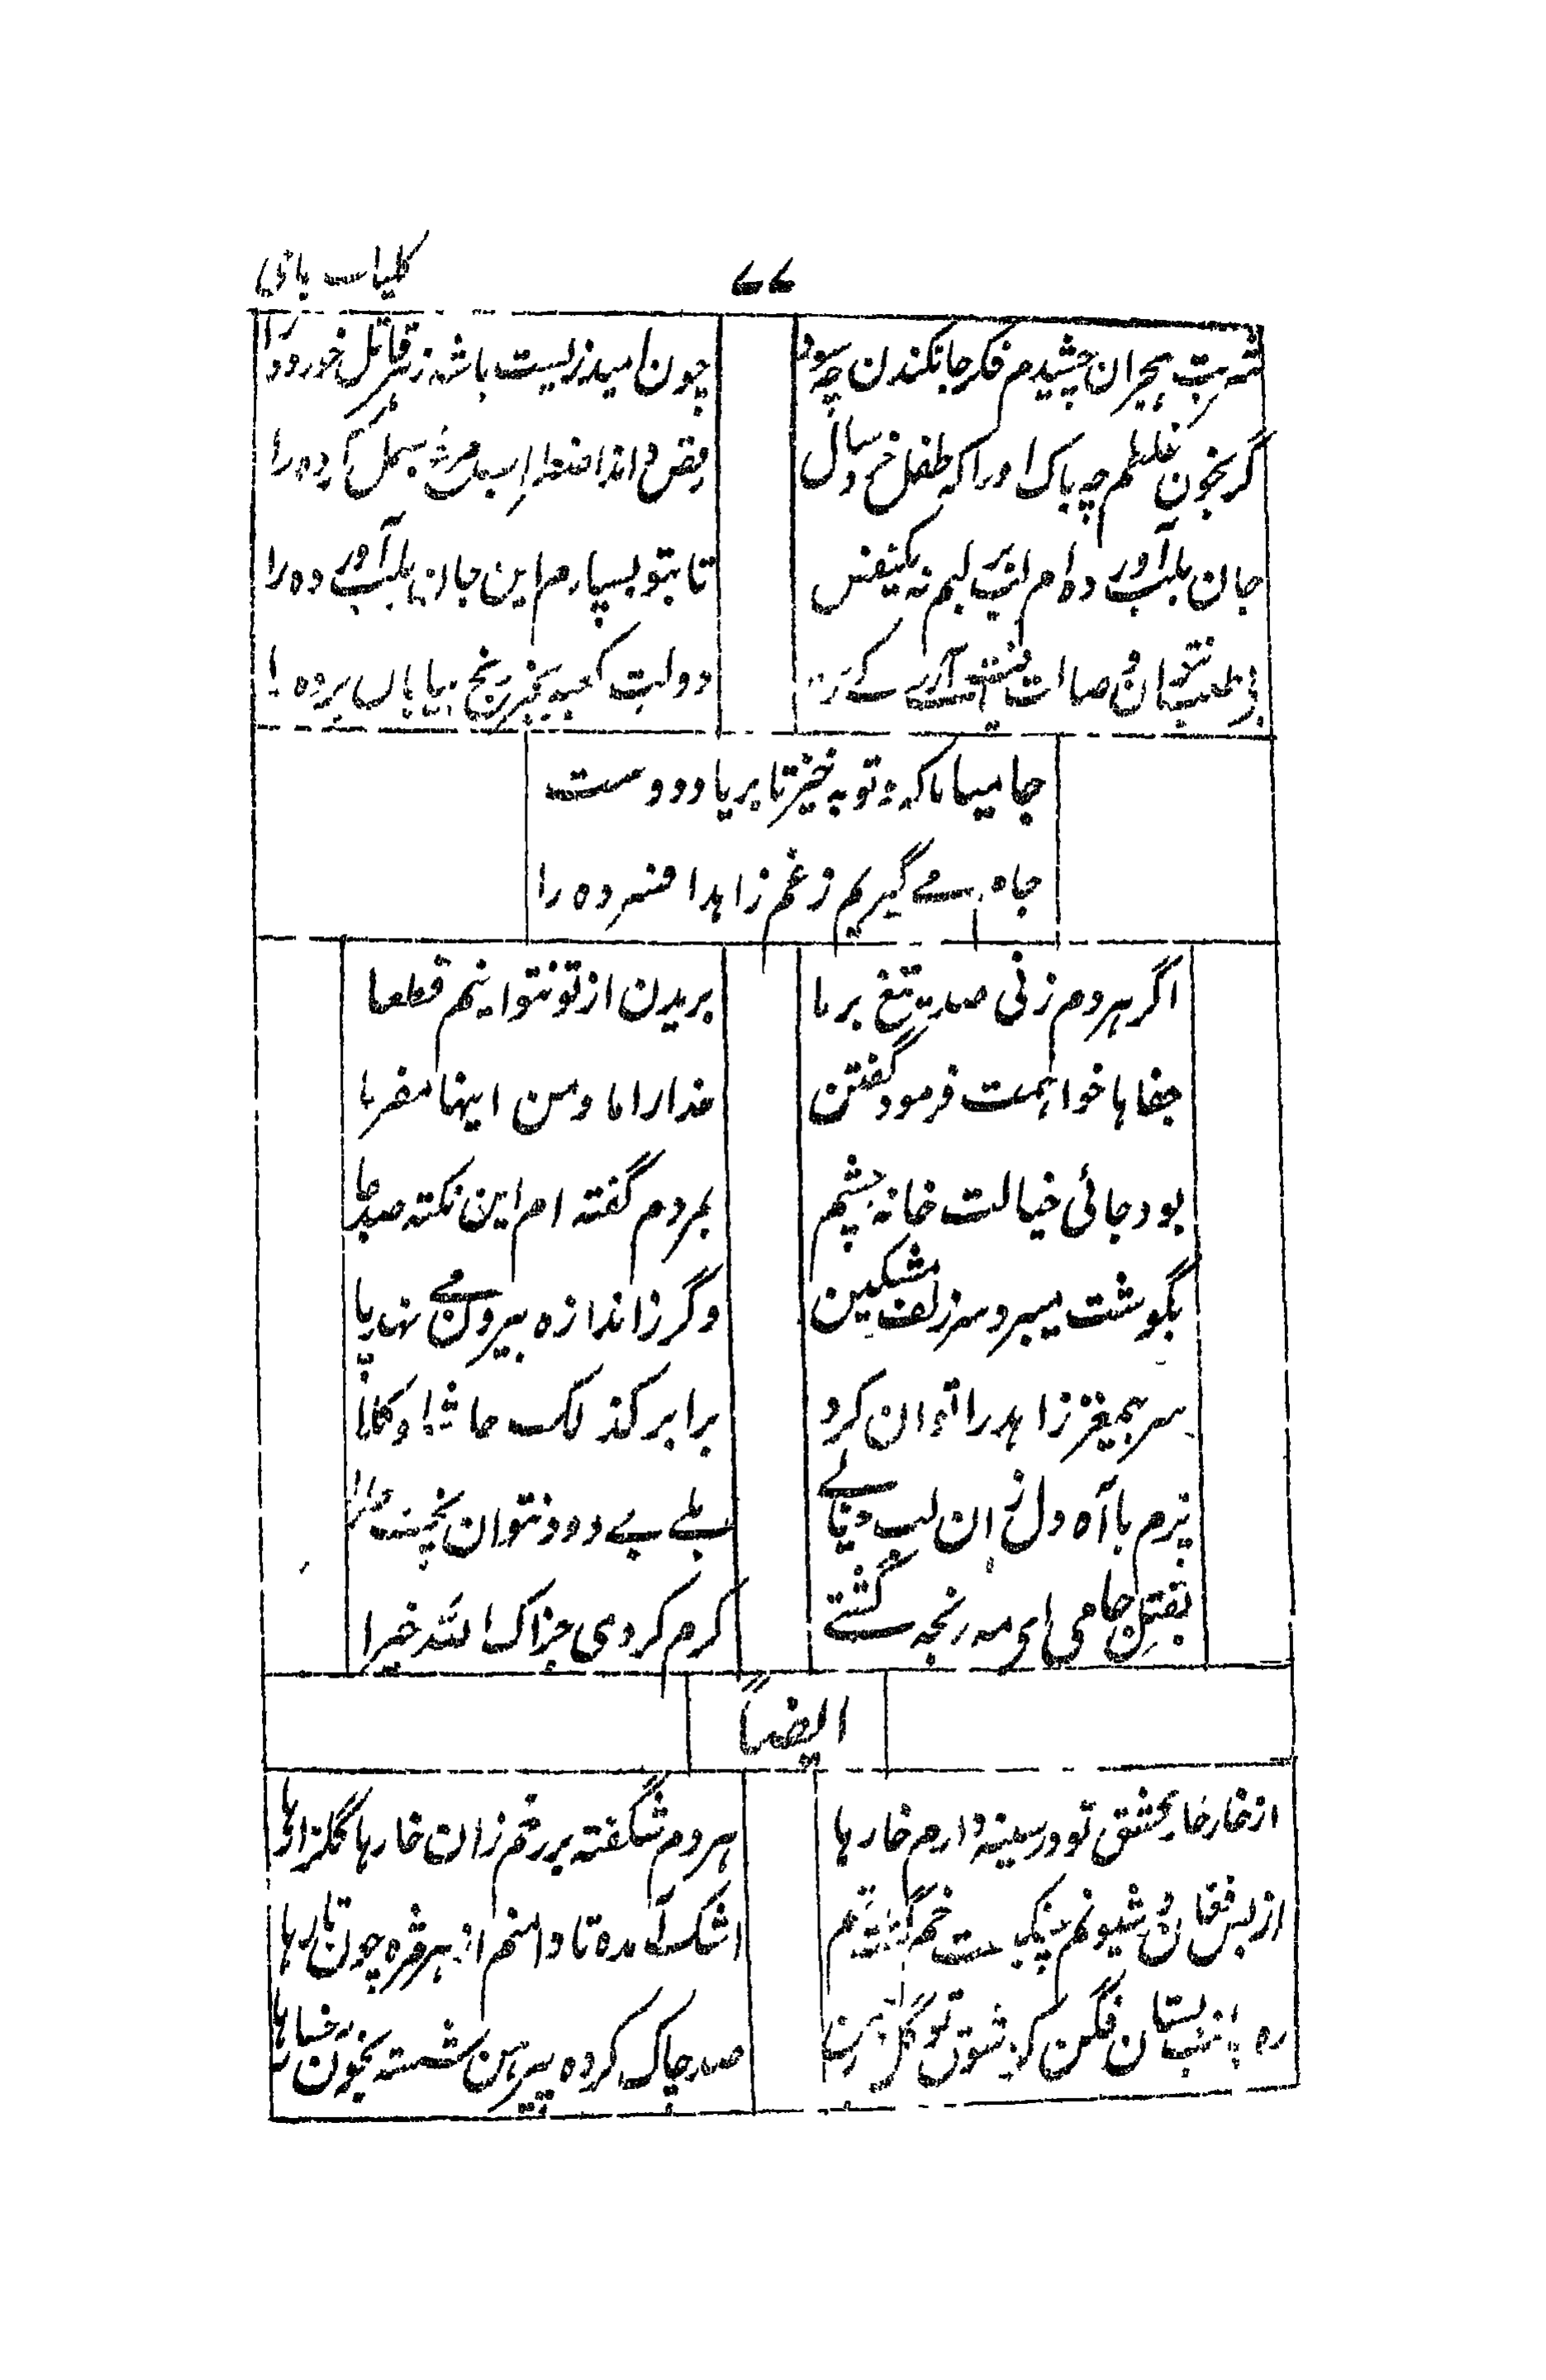 کلیات جامی
۷۷
شربت هجران چشیدم فکر جانکندن چه سود
چون امید زیست باشد زهر قاتل خورده را
گر بخون غلطم چه باک اورا که طفل خرد سال
رقص داند اضطراب مرغ بسمل کرده را
جان بلب آورده ام لب بر لبم نه یکنفس
تا بتو بسپارم این جان بلب آورده را
بی طلب نتوان وصالت یافت آرے کے
دولت کعبه بجز رنج بیابان برده را
جامیا ما که و توبه خیز تا بر یاد دوست
جام مے گیریم و غم زاهد افسرده را
اگر هردم زنی صد تیغ بر ما
بریدن از تو نتوانیم قطعا
جفاها خواهمت فرمود گفتن
خدارا اما ومن اینها مفرما
بود جائی خیالت خانه چشم
بمردم گفته ام این نکته صدجا
بگوشت میبرد سر زلف مشکین
وگر ز اندازه بیرون مے نهد پا
سر بیمغز زاهد را توان کرد
برابر کند لک حاشا وکلا
پزم با آه دل زان لب
بلے بے دود نتوان پخت حلوا
بقتل جامی ای مه رنجه گشتے
کرم کردی جزاک الله خیرا
ایضاً
از خار خار عشق تو در سینه دارم خارها
هردم شگفته بر رخم زان خارها گلزارها
از بس فغان و شیونم چنگیست خم گشته تنم
اشک آمده تا دامنم از هر مژه چون تارها
ره جانب بستان فگن کز شوق تو گل در چمن
صد چاک کرده پیرهن شسته بخون رخسارها